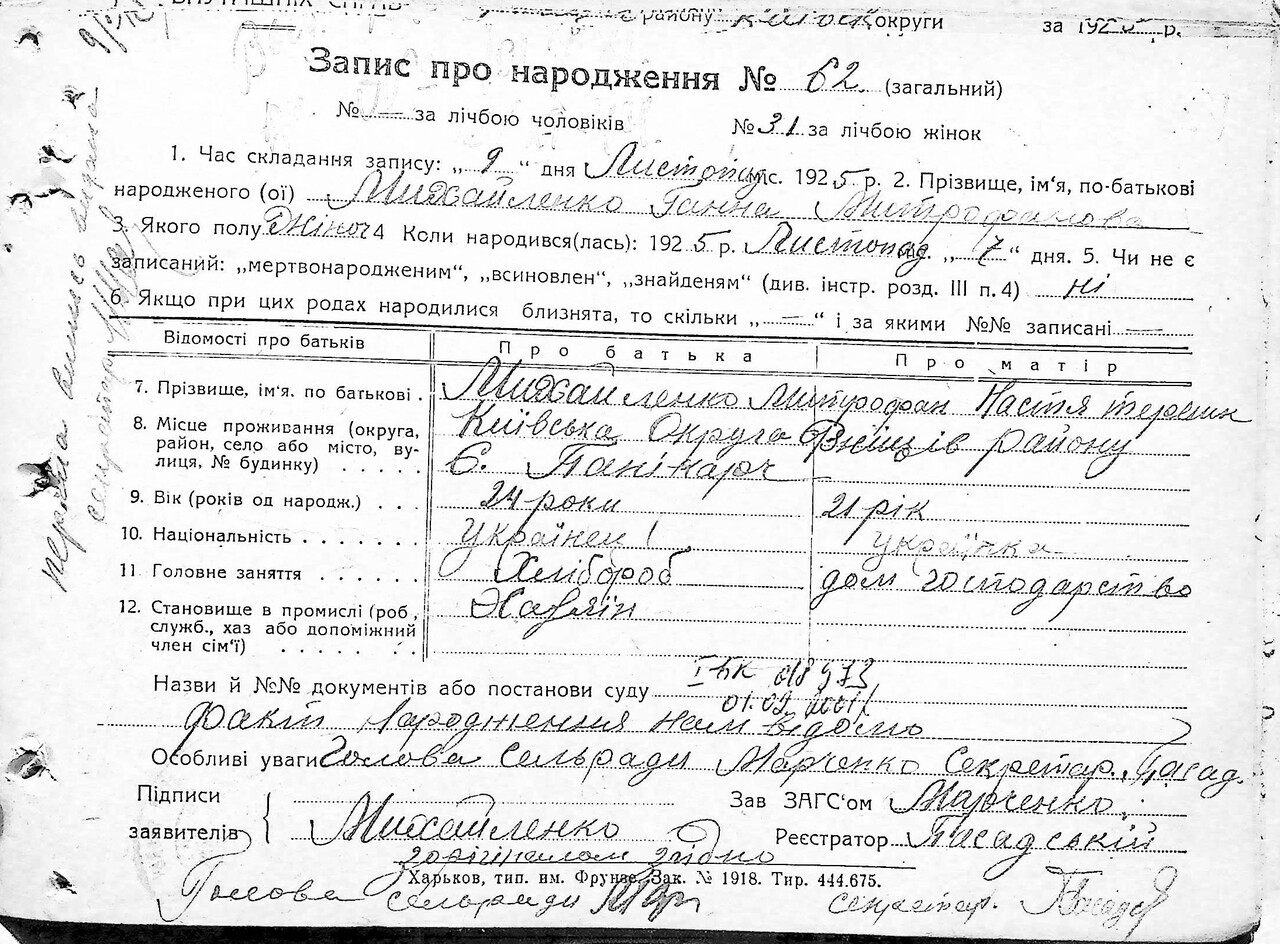 ВНУТРІШНІХ СПРАВ району округи за 192 р.
Запис про народження № 62 (загальний)
№ — за лічбою чоловіків № 31 за лічбою жінок
1. Час складання запису: „ 9 “ дня Листопад міс. 1925 р. 2. Прізвище, ім‘я, по-батькові
народженого (ої) Михайленко Ганна Митрофанова
3. Якого полу Жіноч 4 Коли народився(лась): 1925 р. Листопад міс. „ 7 “ дня. 5. Чи не є
записаний: „мертвонародженим“, „всиновлен“, „знайденям“ (див. інстр. розд. III п. 4) ні
6. Якщо при цих родах народилися близнята, то скільки „ — “ і за якими №№ записані —
Відомості про батьків Про батька Про матір
7. Прізвище, ім‘я. по батькові . Михайленко Митрофан Настя
8. Місце проживання (округа, Київська Округа району
район, село або місто, ву- С.
лиця, № будинку) . . . . .
9. Вік (років од народж.) . . . 24 роки 21 рік
10. Національність . . . . . . . Українец українка
11 Головне заняття . . . . . . Хлібороб дом господарство
12. Становище в промислі (роб, Хазяїн
служб., хаз або допоміжний
член сім‘ї) . . . . . .
Назви й №№ документів або постанови суду
Факт народження нам відомо
Особливі уваги Голова Сельради Марченко Секретар.
Підписи Зав ЗАГС‘ом Марченко
заявителів Михайленко Реєстратор Пасадський
з оригіналом згідно
Харьков, тип. им. Фрунзе, Зак. № 1918. Тир. 444.675.
Голова сельради секретар.